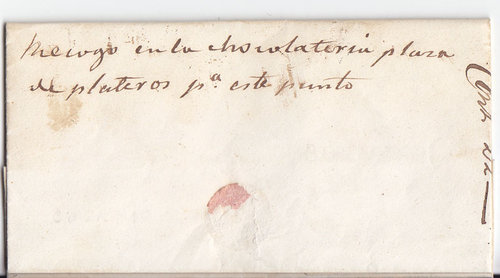 Mecogo en la chocolateria plaza
de plateros pª este punto